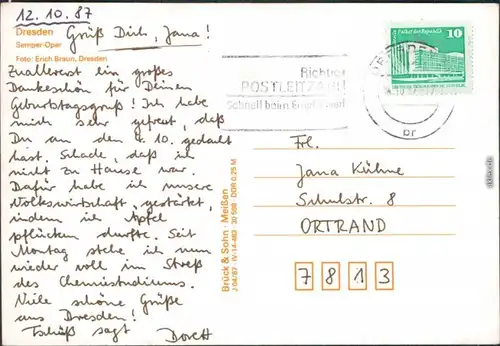 12.10.87
Dresden
Semper-Oper
Foto: Erich Braun, Dresden
Grüß Dich, Jana!
Zuallererst ein großes
Dankeschön für Deinen
Geburtstagsgruß! Ich habe
mich sehr gefreut, daß
Du an den 4.10. gedacht
hast. Schade, daß ich
nicht zu Hause war.
Dafür habe ich unsere
Volkswirtschaft gestärkt,
indem ich Äpfel
pflücken durfte. Seit
Montag stehe ich nun
wieder voll im Streß
des Chemiestudiums.
Viele schöne Grüße
aus Dresden!
Tschüß sagt Dorett
Brück & Sohn · Meißen
J 04/87 · IV-14-483 DDR 0,25 M
Richtige
POSTLEITZAHL!
Schnell beim Empfänger!
DRESDEN
br
Palast der Republik
10
Frl.
Jana Kühne
Schulstr. 8
ORTRAND
7813